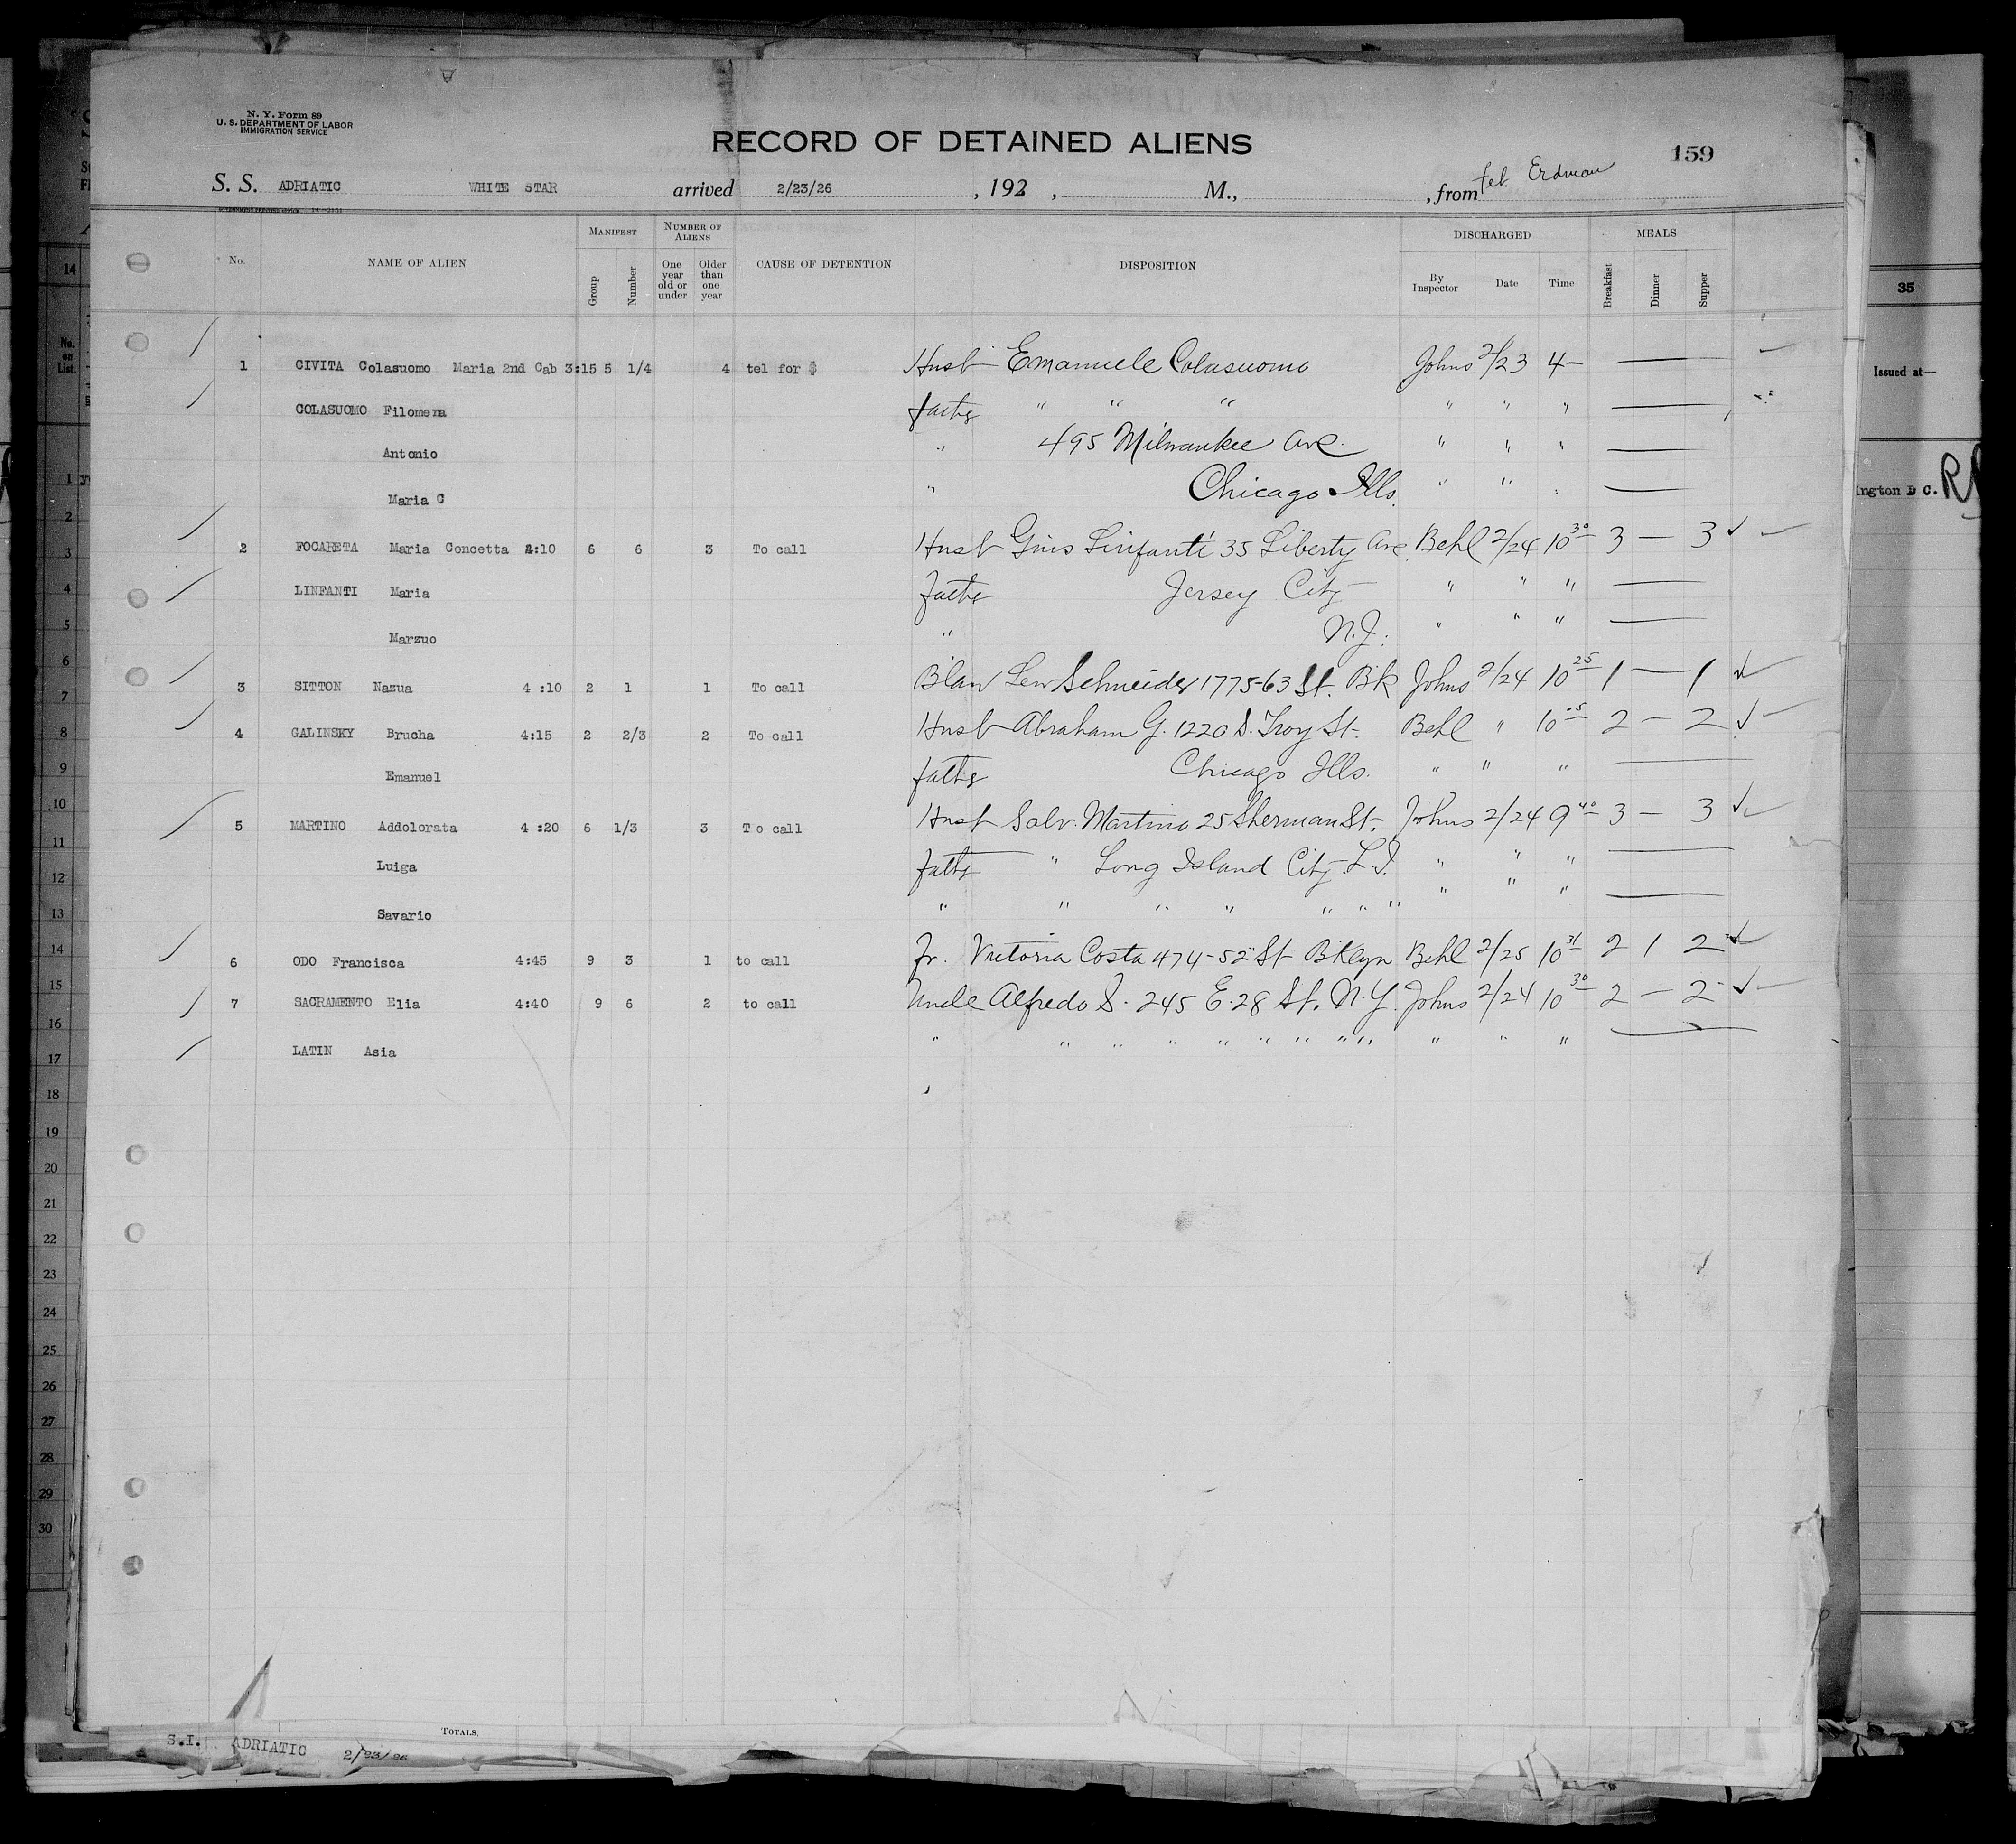 N. Y. Form 89
U. S. DEPARTMENT OF LABOR
IMMIGRATION SERVICE
RECORD OF DETAINED ALIENS
159
S. S. ADRIATIC WHITE STAR arrived 2/23/26, 192 , M., , from Erdman
No. NAME OF ALIEN MANIFEST Group Number NUMBER OF ALIENS One year old or under Older than one year CAUSE OF DETENTION DISPOSITION DISCHARGED By Inspector Date Time MEALS Breakfast Dinner Supper
1 CIVITA Colasuomo Maria 2nd Cab 3:15 5 1/4 4 tel for $ Husb Emanuele Colasuomo Johns 2/23 4—
COLASUOMO Filomena father " " " " " "
Antonio " 495 Milwaukee Ave " " "
Maria C " Chicago Ills. " " "
2 FOCARETA Maria Concetta 4:10 6 6 3 To call Husb Linfanti 35 Liberty Ave Behl 2/24 10 30 3 — 3 ✓
LINFANTI Maria father Jersey City " " "
Marzuo " N.J. " " "
3 SITTON Nazua 4 :10 2 1 1 To call Blaw Schneider 1775-63 St. Bk Johns 2/24 10 25 1 — 1 ✓
4 GALINSKY Brucha 4:15 2 2/3 2 To call Husb Abraham G. 1220 S. Troy St. Behl " 10 2 — 2 ✓
Emanuel father Chicago Ills. " " "
5 MARTINO Addolorata 4 :20 6 1/3 3 To call Husb Salv. Martino 25 Sherman St. Johns 2/24 9 40 3 — 3 ✓
Luiga father " Long Island City L.I. " " "
Savario " " " " " " " " " "
6 ODO Francisca 4:45 9 3 1 to call Fr. Vittoria Costa 474-52 St Bklyn Behl 2/25 10 31 2 1 2 ✓
7 SACRAMENTO Elia 4:40 9 6 2 to call Uncle Alfredo S. 245 E. 28 St. N.Y. Johns 2/24 10 30 2 — 2 ✓
LATIN Asia " " " " " " " " " " " "
TOTALS
S.I. ADRIATIC 2/23/26
14
No. on List.
1
2
3
4
5
6
7
8
9
10
11
12
13
14
15
16
17
18
19
20
21
22
23
24
25
26
27
28
29
30
35
Issued at—
ington D C.